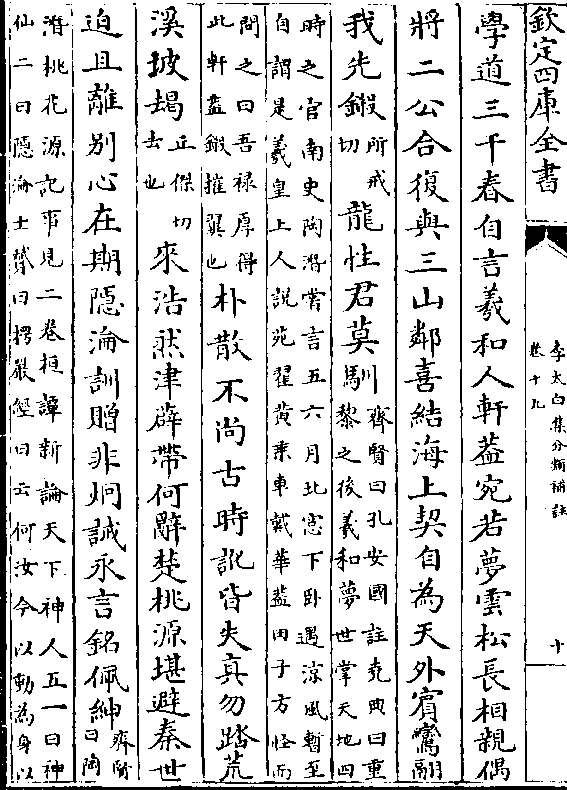 欽定四庫全書
李太白集分類補註
卷十九
十
學道三千春自言羲和人軒蓋宛若夢雲松長相親偶
將二公合復與三山鄰喜結海上契自為天外賓鸞翮
我先鎩所戒切龍性君莫馴齊賢曰孔安國註堯典曰重黎之後羲和夢世掌天地四
時之官南史陶潛嘗言五六月北窓下卧遇涼風暫至自謂是羲皇上人説苑翟黄乗車戴華蓋田子方怪而
問之曰吾禄厚得此軒蓋鎩摧翼也朴散不尚古時訛皆失真勿踏荒
溪坡朅丘傑切去也來浩然津薜帶何辭楚桃源堪避秦世
迫且離别心在期隱淪訓贈非炯誡永言銘佩紳齊賢曰陶
潛桃花源記事見二卷桓譚新論天下神人五一曰神仙二曰隱淪士贇曰楞嚴經曰云何汝今以動為身以